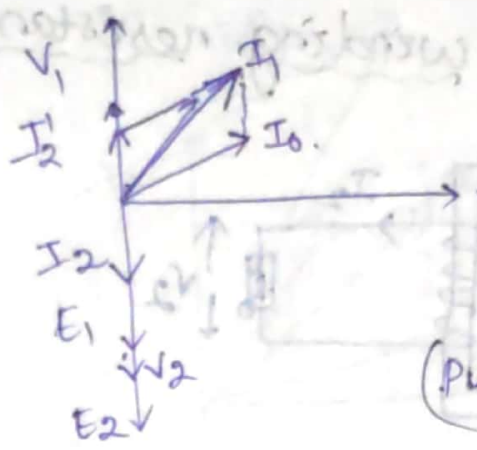 V₁
I₁
I₂'
I₀.
I₂
E₁
V₂
E₂
(Pu